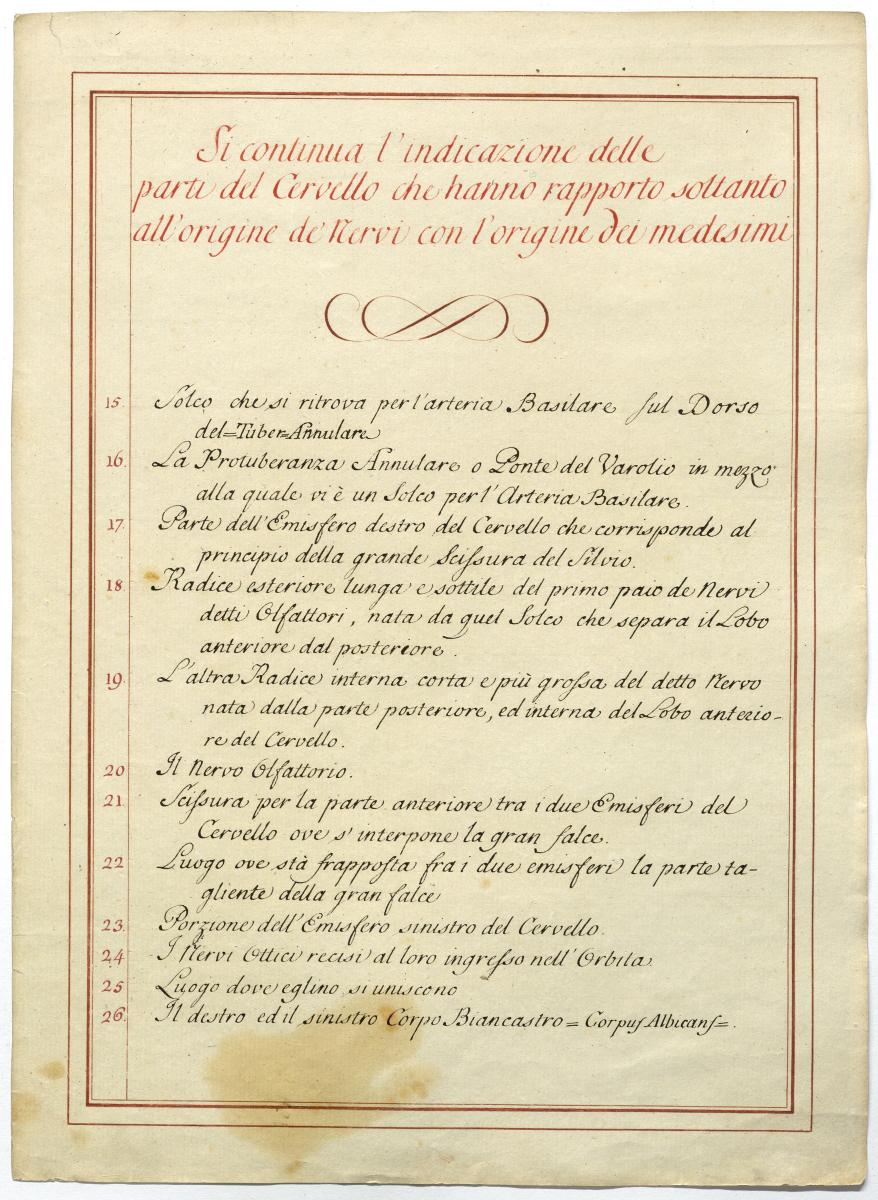 Si continua l'indicazione delle
parti del Cervello che hanno rapporto soltanto
all'origine de' Nervi con l'origine dei medesimi
15. Solco che si ritrova per l'arteria Basilare sul Dorso
del=Tuber=Annulare
16. La Protuberanza Annulare o Ponte del Varolio in mezzo
alla quale vi è un Solco per l'Arteria Basilare.
17. Parte dell'Emisfero destro del Cervello che corrisponde al
principio della grande Scissura del Silvio.
18. Radice esteriore lunga e sottile del primo paio de Nervi
detti Olfattori, nata da quel Solco che separa il Lobo
anteriore dal posteriore.
19. L'altra Radice interna corta e più grossa del detto Nervo
nata dalla parte posteriore, ed interna del Lobo anterio-
re del Cervello.
20 Il Nervo Olfattorio.
21. Scissura per la parte anteriore tra i due Emisferi del
Cervello ove s'interpone la gran falce.
22 Luogo ove stà frapposta fra i due emisferi la parte ta-
gliente della gran falce
23. Porzione dell'Emisfero sinistro del Cervello.
24. I Nervi Ottici recisi al loro ingresso nell'Orbita.
25 Luogo dove eglino si uniscono
26. Il destro ed il sinistro Corpo Biancastro=Corpus Albicans=.